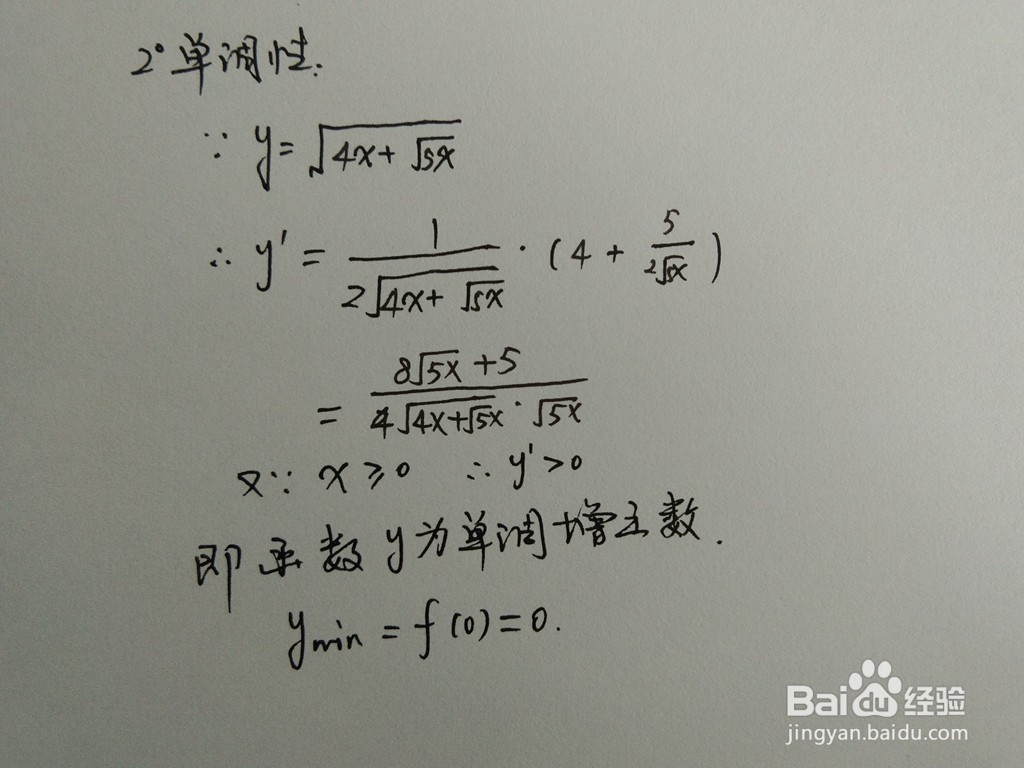 2° 单调性.
∵ y = √(4x + √(5x))
∴ y' = 1 / (2√(4x + √(5x))) · (4 + 5 / (2√(5x)))
= (8√(5x) + 5) / (4√(4x + √(5x)) · √(5x))
又∵ x ≥ 0 ∴ y' > 0
即函数y为单调增函数.
y min = f(0) = 0.
Baidu 经验
jingyan.baidu.com